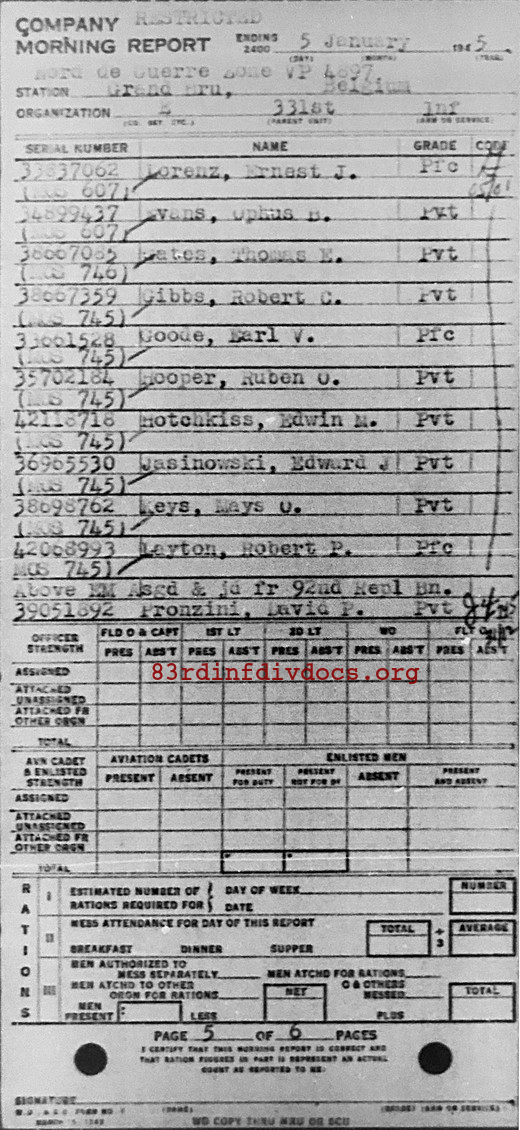 RESTRICTED
COMPANY
MORNING REPORT ENDING 2400 5 January 1945
(DAY) (MONTH) (YEAR)
Nord de Guerre Zone VP 4897
STATION Grand Bru, Belgium
ORGANIZATION E 331st Inf
(CO. DET. ETC.) (PARENT UNIT) (ARM OR SERVICE)
SERIAL NUMBER NAME GRADE CODE
33837062 Lorenz, Ernest J. Pfc
(MOS 607)
34899437 Evans, Ophus B. Pvt
(MOS 607)
38667085 Gates, Thomas E. Pvt
(MOS 746)
38667359 Gibbs, Robert C. Pvt
(MOS 745)
33661528 Goode, Earl V. Pfc
(MOS 745)
35702184 Hooper, Ruben O. Pvt
(MOS 745)
42118718 Hotchkiss, Edwin M. Pvt
(MOS 745)
36965530 Jasinowski, Edward J Pvt
(MOS 745)
38698762 Keys, Mays O. Pvt
(MOS 745)
42068993 Layton, Robert P. Pfc
MOS 745)
Above EM Asgd & jd fr 92nd Repl Bn.
39051892 Pronzini, David P. Pvt
OFFICER STRENGTH FLD O & CAPT 1ST LT 2D LT WO FLT O
PRES ABS'T PRES ABS'T PRES ABS'T PRES ABS'T PRES ABS'T
ASSIGNED
83rdinfdivdocs.org
ATTACHED UNASSIGNED
ATTACHED FR OTHER ORGN
TOTAL
AVN CADET & ENLISTED STRENGTH AVIATION CADETS ENLISTED MEN
PRESENT ABSENT PRESENT FOR DUTY PRESENT NOT FOR DY ABSENT PRESENT AND ABSENT
ASSIGNED
ATTACHED UNASSIGNED
ATTACHED FR OTHER ORGN
TOTAL
RATIONS
I ESTIMATED NUMBER OF RATIONS REQUIRED FOR { DAY OF WEEK DATE NUMBER
II MESS ATTENDANCE FOR DAY OF THIS REPORT TOTAL ÷ 3 AVERAGE
BREAKFAST DINNER SUPPER
III MEN AUTHORIZED TO MESS SEPARATELY MEN ATCHD FOR RATIONS
MEN ATCHD TO OTHER ORGN FOR RATIONS NET O & OTHERS MESSED TOTAL
MEN PRESENT LESS PLUS
PAGE 5 OF 6 PAGES
I CERTIFY THAT THIS MORNING REPORT IS CORRECT AND
THAT RATION FIGURES IN PART III REPRESENT AN ACTUAL
COUNT AS REPORTED TO ME:
SIGNATURE
W.D., A.G.O. FORM NO. 1 (NAME) (GRADE) (ARM OR SERVICE)
MARCH
WD COPY THRU MRU OR SCU